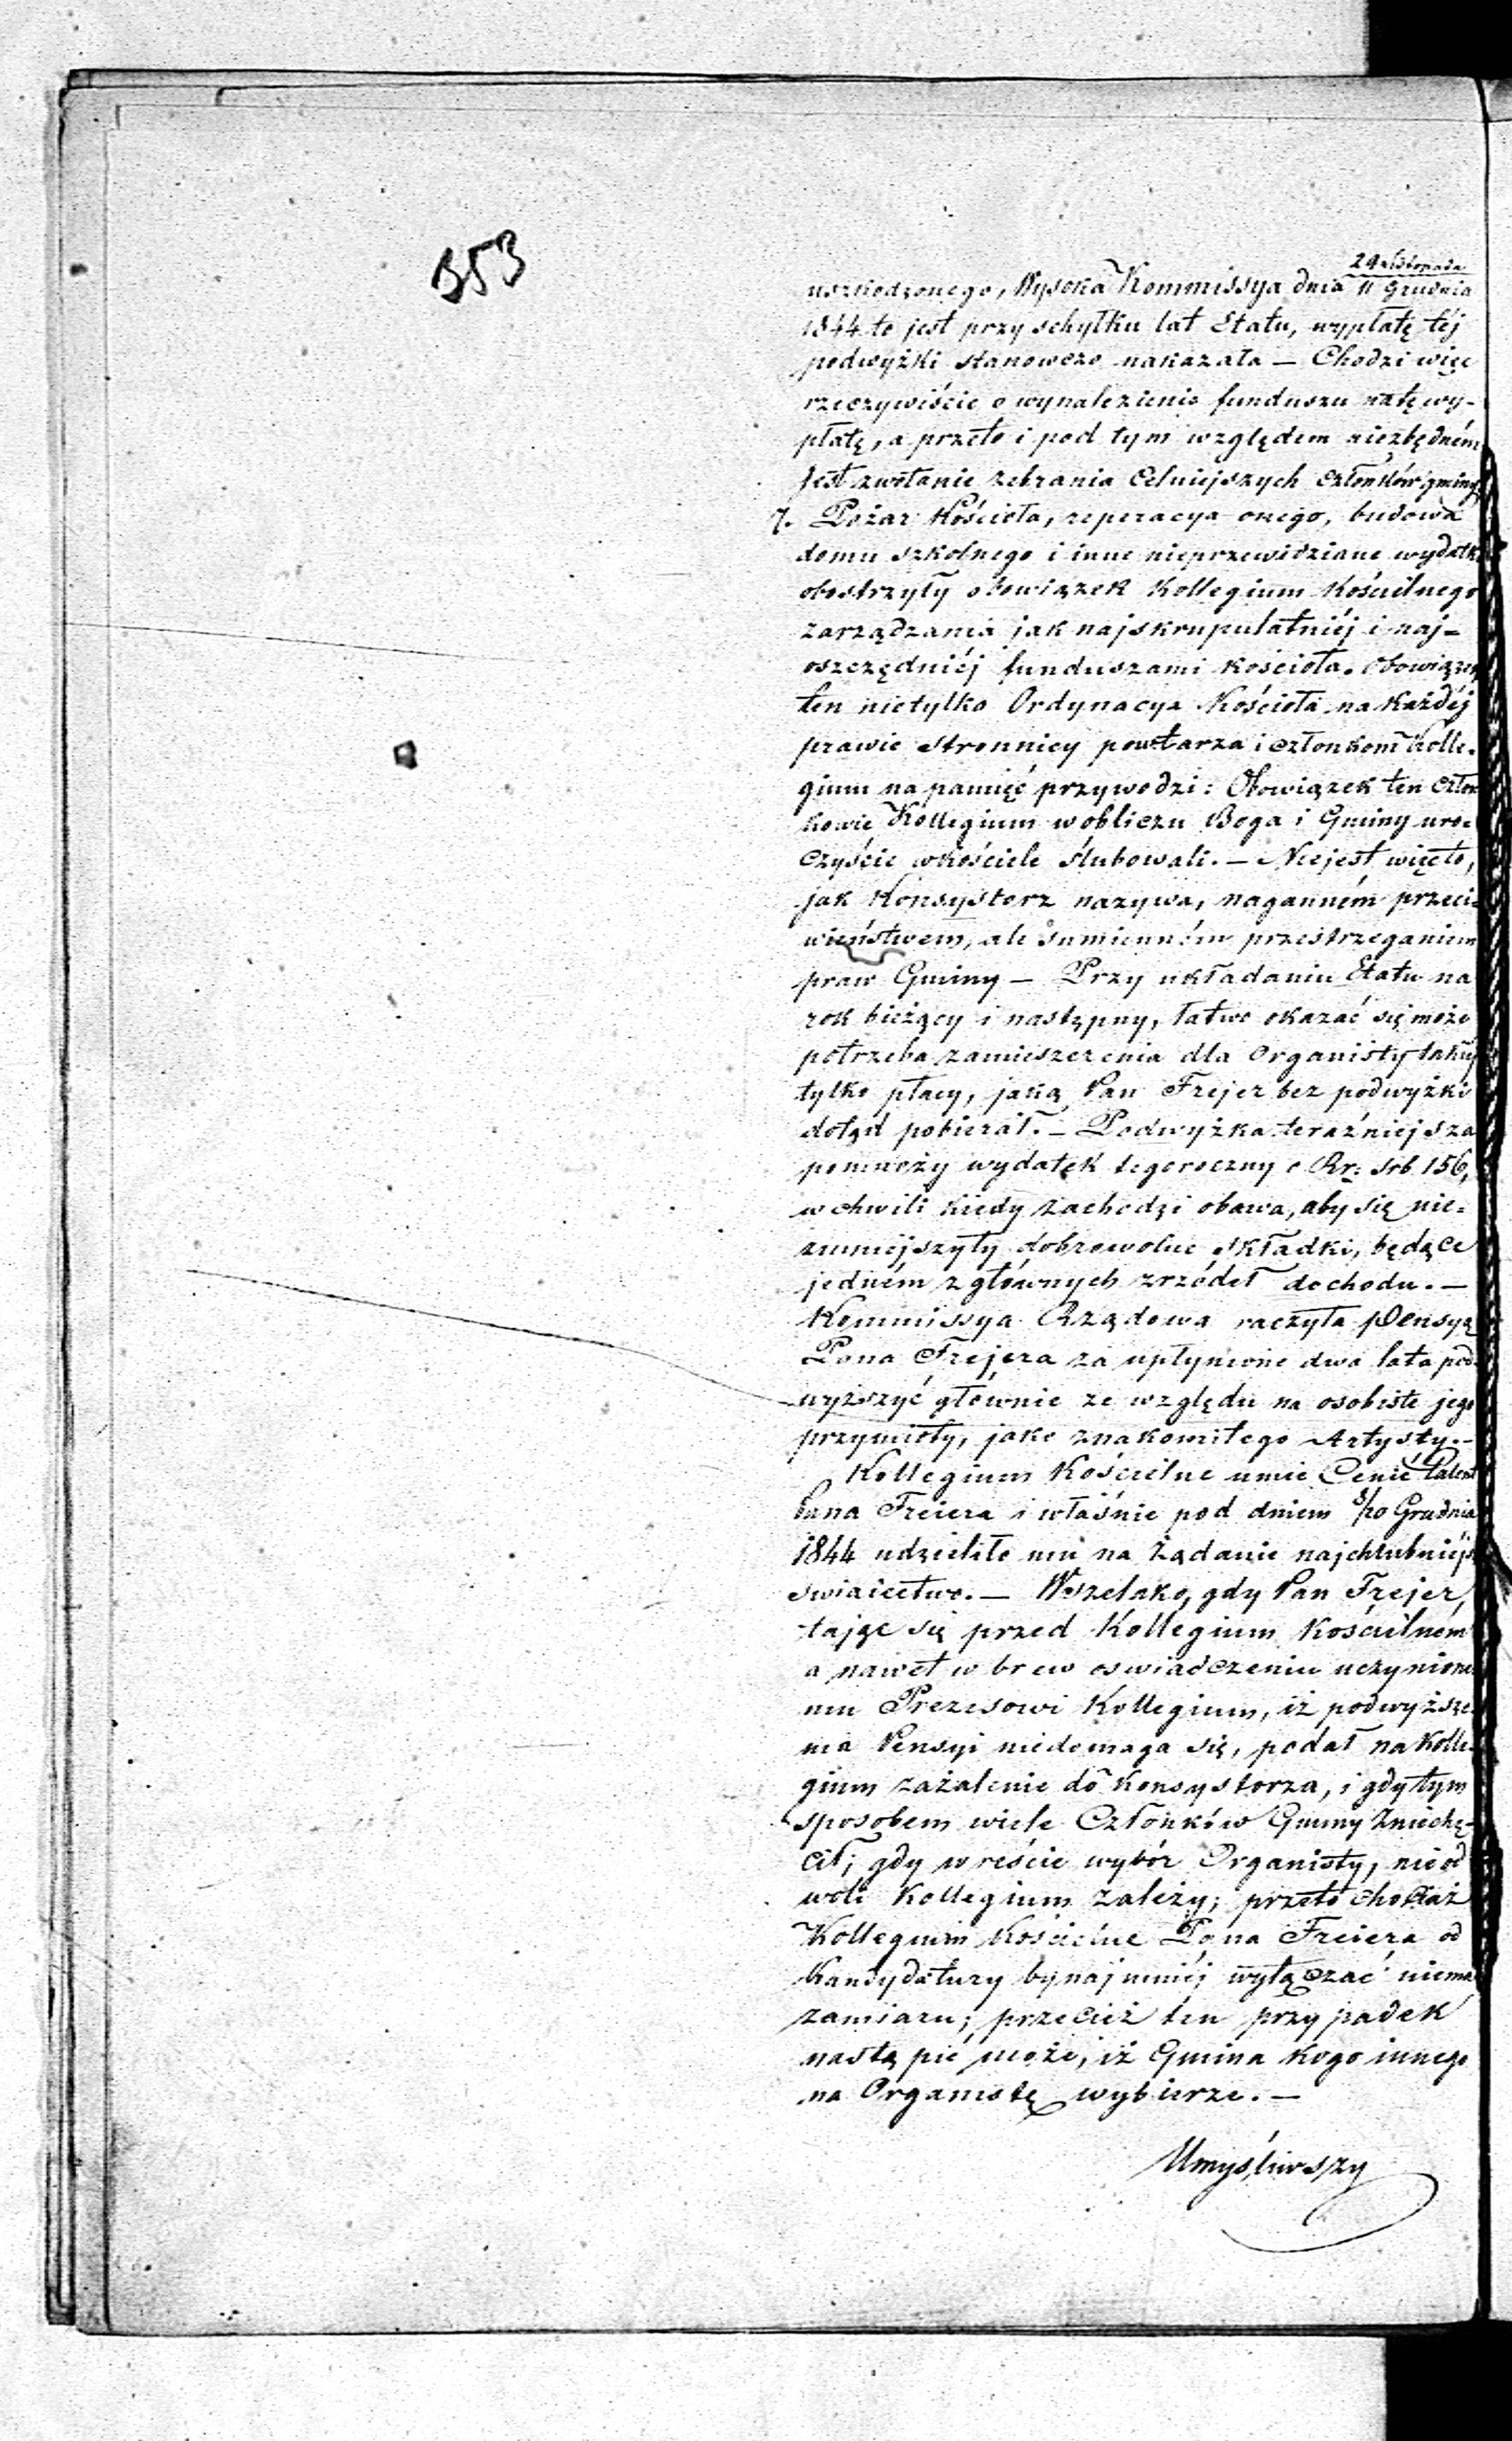 353
29 Listopada
uszkodzonego, Wysoka Kommissya dnia 11 Grudnia
1844 to jest przy schyłku lat Etatu, wypłatę téj
podwyżki stanowczo nakazała — Chodzi więc
rzeczywiście o wynalezienie funduszu na tę wy-
płatę, a przeto i pod tym względem niezbędném
jest zwołanie zebrania Celniejszych członków gminy
7. Pożar Kościoła, reperacya onego, budowa
domu szkolnego i inne nieprzewidziane wydatki
obostrzyły obowiązek Kollegium Kościelnego
zarządzania jak najskrupulatniéj i naj-
oszczędniéj funduszami kościoła. Obowiązek
ten nietylko Ordynacya Kościoła na każdéj
prawie stronnicy powtarza i członkom Kolle-
gium na pamięć przywodzi: Obowiązek ten Człon
kowie Kollegium w obliczu Boga i Gminy uro-
czyście w kościele ślubowali. — Nie jest więc to,
jak Konsystorz nazywa, naganném przeci-
wieństwem, ale sumienném przestrzeganiem
praw Gminy — Przy układaniu Etatu na
rok bieżący i następny, łatwo okazać się może
potrzeba zamieszczenia dla Organisty takiéj
tylko płacy, jaką Pan Frejer bez podwyżki
dotąd pobierał. — Podwyżka teraźniejsza
pomnoży wydatek tegoroczny o Rr: srb 156,
w chwili kiedy zachodzi obawa, aby się nie-
zmniejszyły dobrowolne składki, będące
jedném z głównych zrzódeł dochodu. —
Kommissya Rządowa raczyła pensyą
Pana Frejera za upłynione dwa lata pod-
wyższyć głównie ze względu na osobiste jego
przymioty, jako znakomitego Artysty. —
Kollegium Kościelne umie Cenić talent
Pana Freiera i właśnie pod dniem 8/20 Grudnia
1844 udzieliło mu na żądanie najchlubniejsze
swiadectwo. — Wszelako, gdy Pan Frejer,
tając się przed Kollegium Kościelném
a nawet w brew oswiadczeniu uczynione
mu Prezesowi Kollegium, iż podwyższe-
nia Pensyi niedomaga się, podał na Kolle-
gium zażalenie do Konsystorza, i gdy tym
sposobem wiele Członków Gminy Zniechę-
cił; gdy w reście wybór Organisty, nie od
woli Kollegium zależy; przeto chociaż
Kollegium Kościelne Pana Freiera od
Kandydatury bynajmniéj wyłączać niema
zamiaru; przecież ten przypadek
nastąpić może, iż Gmina kogo innego
na Organistę wybierze. —